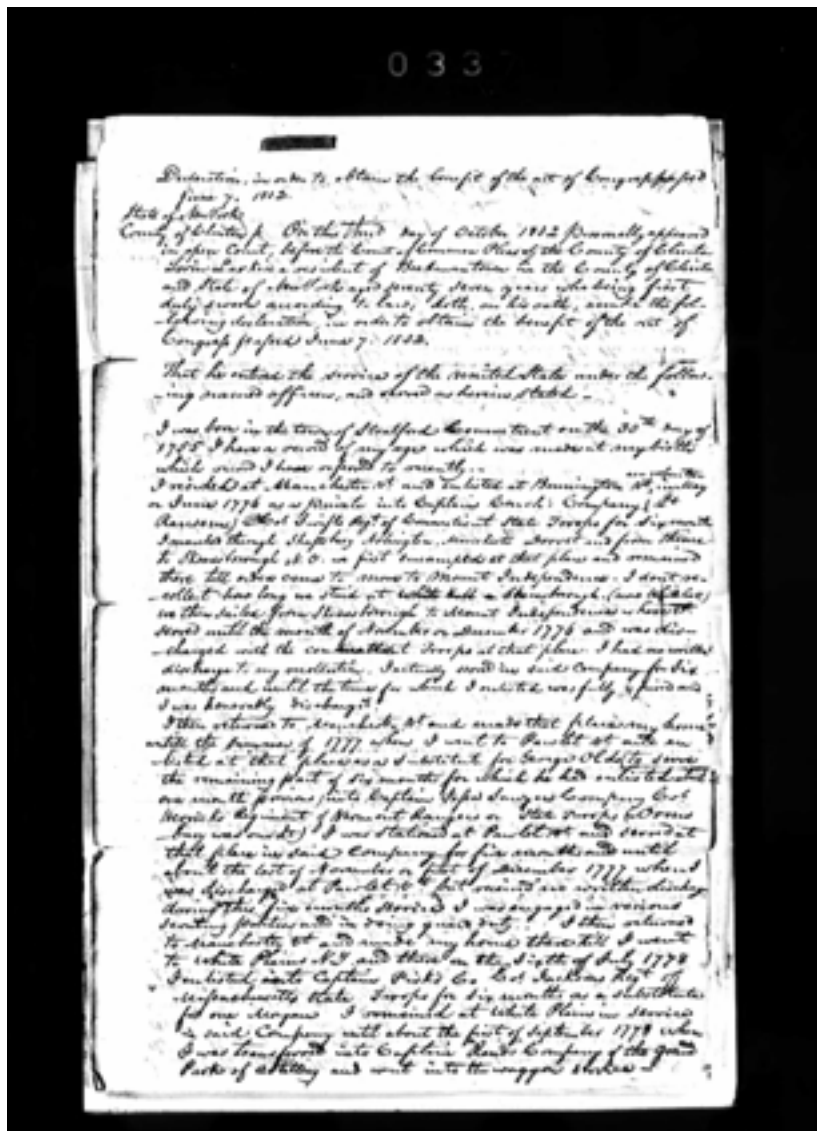 0337
Declaration, in order to obtain the benefit of the act of Congress passed
June 7. 1832
State of New York
County of Clinton On this third day of October 1832 Personally appeared
in open Court, before the Court of Common Pleas of the County of Clinton
a resident of Beekmantown in the County of Clinton
and State of New York aged seventy seven years who being first
duly sworn according to law, doth, on his oath, make the fol-
lowing declaration, in order to obtain the benefit of the act of
Congress passed June 7. 1832.
That he entered the service of the united States under the follow-
ing named officers, and served as herein stated -
I was born in the town of Stratford Connecticut on the 30th day of
1755 I have a record of my age which was made at my birth
which record I have referred to recently -
I resided at Manchester Vt and enlisted at Bennington Vt, in May
or June 1776 as a private into Captain Company
Col Swifts Regt of Connecticut State Troops for six months
I marched through Shaftsbury Arlington, Manchester Dorset and from thence
to Skenesborough N.Y. we first encamped at that place and remained
there till orders came to move to Mount Independence - I dont re-
collect how long we staid at Skenesborough
we then sailed from Skenesborough to Mount Independence where I
served until the month of November or December 1776 and was dis-
charged with the Connecticut Troops at that place. I had no written
discharge to my recollection. I actually served in said Company for Six
months and until the time for which I enlisted was fully expired and
I was honorably discharged.
I then returned to Manchester Vt and made that place my home
untill the summer of 1777 when I went to Pawlet Vt and en-
listed at that place as a substitute for George Olds to serve
the remaining part of six months for which he had enlisted
one month previous into Captain Sawyers Company Col
Herricks Regiment of Vermont Rangers or State Troops
was our I was stationed at Pawlet Vt and served at
that place in said Company for five months and until
about the last of November or first of December 1777 when I
was discharged at Pawlet Vt but received no written discharge
during this five months service I was engaged in various
scouting parties and in doing guard duty - I then returned
to Manchester Vt and made my home there till I went
to White Plains N.Y and there on the Sixth of July 1778
I enlisted into Captain Co. Col Jacksons Regt of
Massachusetts State Troops for six months as a substitute
for one Morgan I remained at White Plains in service
in said Company until about the first of September 1778 when
I was transferred into Captain Company of the Grand
Park of Artillery and went into the waggon service -